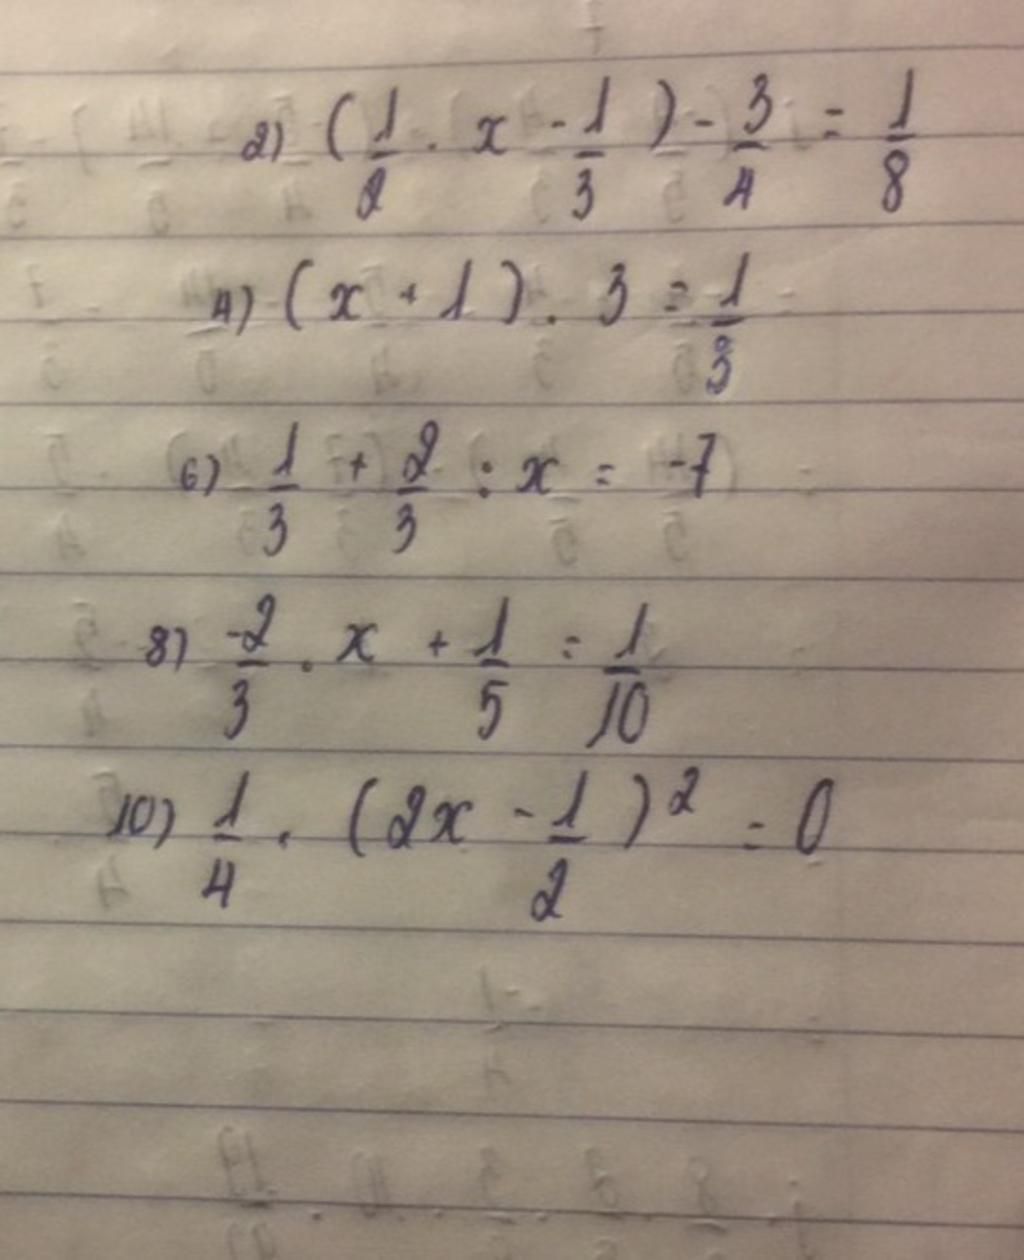 2) (1/2 . x - 1/3) - 3/4 = 1/8
4) (x + 1) . 3 = 1/3
6) 1/3 + 2/3 : x = -7
8) -2/3 . x + 1/5 = 1/10
10) 1/4 . (2x - 1/2)² = 0